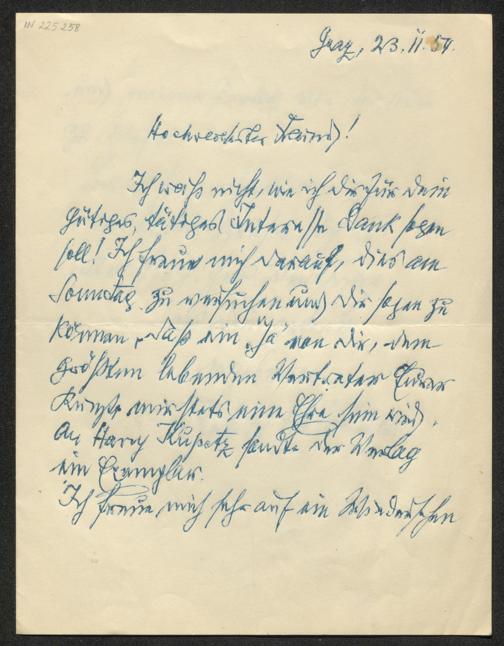 IN 225 258
Graz, 23. II. 54.
Hochverehrter Freund!
Ich weiß nicht, wie ich dir für dein
gütiges, tätiges Interesse Dank sagen
soll! Ich freue mich darauf, dies am
Sonntag zu versuchen und dir sagen zu
können, daß ein „Ja" von dir, dem
größten lebenden Vertreter Eurer
Kunst, mir stets eine Ehre sein wird.
An Harry Kupetz sandte der Verlag
ein Exemplar.
Ich freue mich sehr auf ein Wiedersehen